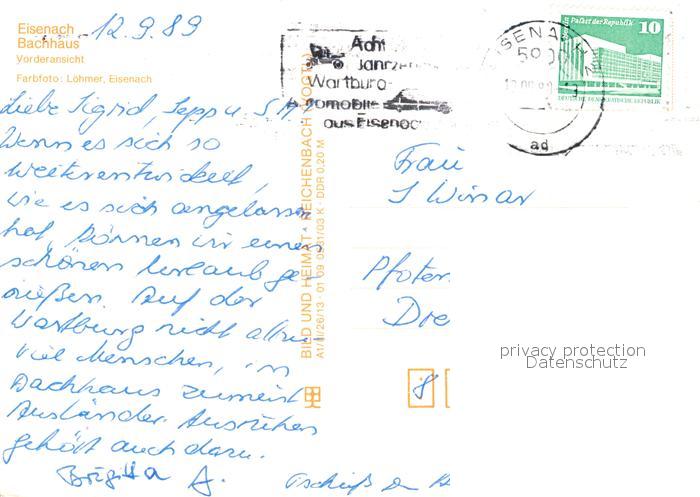 Eisenach
Bachhaus
Vorderansicht
Farbfoto: Löhmer, Eisenach
12.9.89
Acht
Jahrzeh
Wartburg-
omobile
aus Eisenac
EISENACH
5900
ad
Palast der Republik 10
DEUTSCHE DEMOKRATISCHE REPUBLIK
Liebe Sigrid, Sepp u. S
Wenn es sich so
weiterentwickelt,
wie es sich angelassen
hat, können wir einen
schönen Urlaub ge-
nießen. Auf der
Wartburg nicht allzu
viel Menschen, im
Bachhaus zumeist
Ausländer. Ausruhen
gehört auch dazu.
Brigitta A.
BILD UND HEIMAT REICHENBACH (VOGTL)
A1/III/26/13 · 01 09 0931/03 K · DDR 0,20 M
Frau
Pfoten
Dre
8
privacy protection
Datenschutz